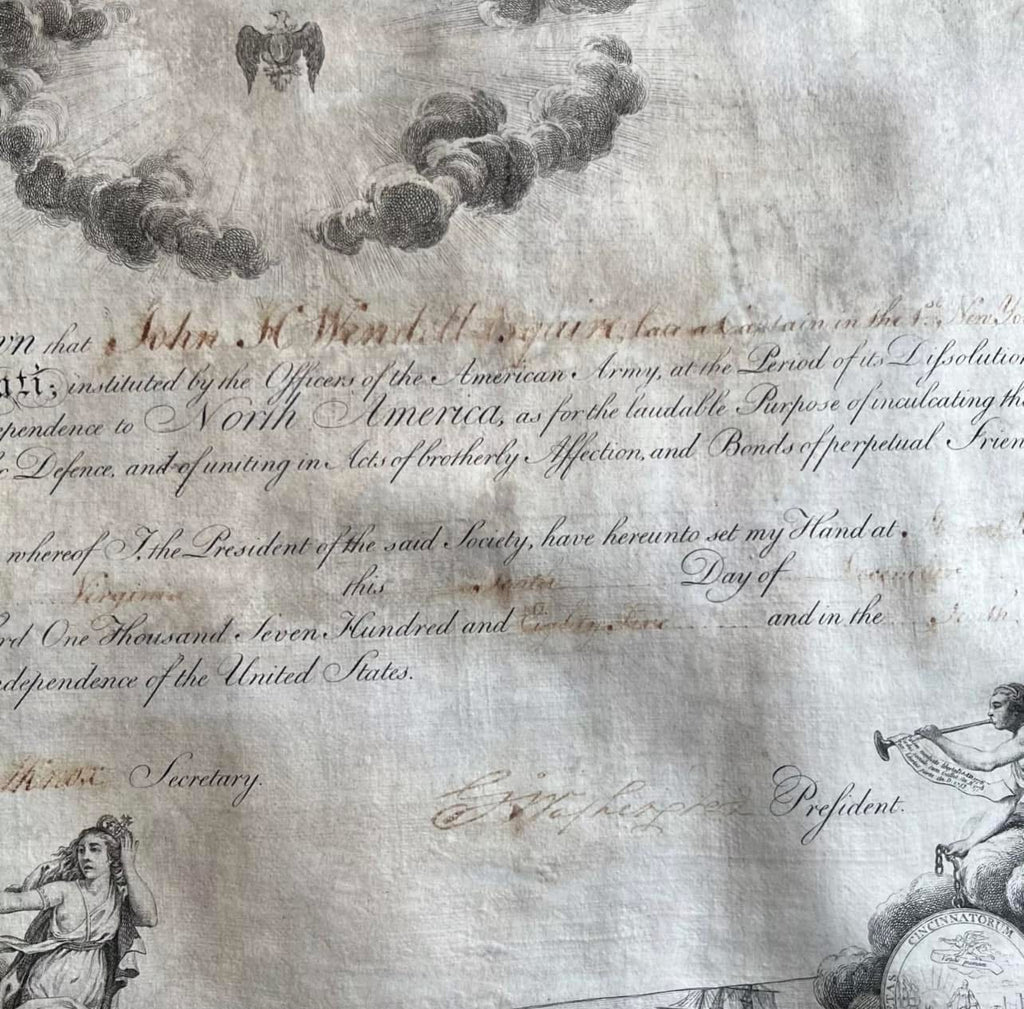 that John H Wendell Esquire, late a Captain in the 1st New Yo
ati; instituted by the Officers of the American Army, at the Period of its Dissolution
ependence to North America, as for the laudable Purpose of inculcating th
Defence, and of uniting in Acts of brotherly Affection, and Bonds of perpetual Frien
whereof I, the President of the said Society, have hereunto set my Hand at
Virginia this Day of December
One Thousand Seven Hundred and Eighty Five and in the Tenth
dependence of the United States.
HKnox Secretary. G. Washington President.
CINCINNATORUM